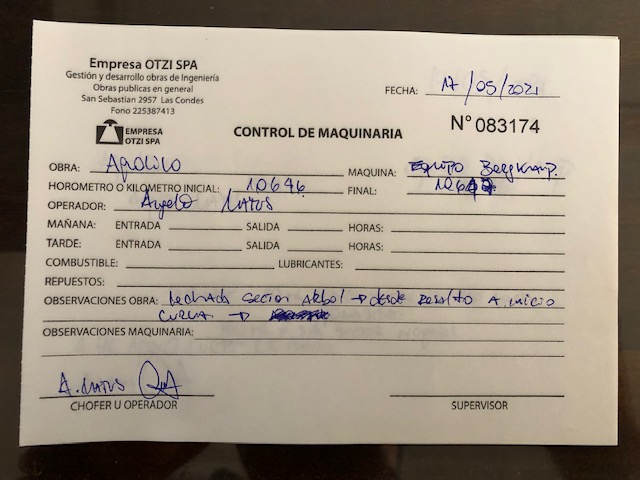 Empresa OTZI SPA
Gestión y desarrollo obras de Ingeniería
Obras publicas en general
San Sebastián 2957 Las Condes
Fono 225387413
FECHA: 17/05/2021
EMPRESA
OTZI SPA
CONTROL DE MAQUINARIA
N° 083174
OBRA: Apolilo MAQUINA: Equipo Bergkamp.
HOROMETRO O KILOMETRO INICIAL: 10646 FINAL:
OPERADOR: Angelo Natus
MAÑANA: ENTRADA SALIDA HORAS:
TARDE: ENTRADA SALIDA HORAS:
COMBUSTIBLE: LUBRICANTES:
REPUESTOS:
OBSERVACIONES OBRA: lechada sector Arbol → desde A inicio
curva →
OBSERVACIONES MAQUINARIA:
A. Natus
CHOFER U OPERADOR SUPERVISOR